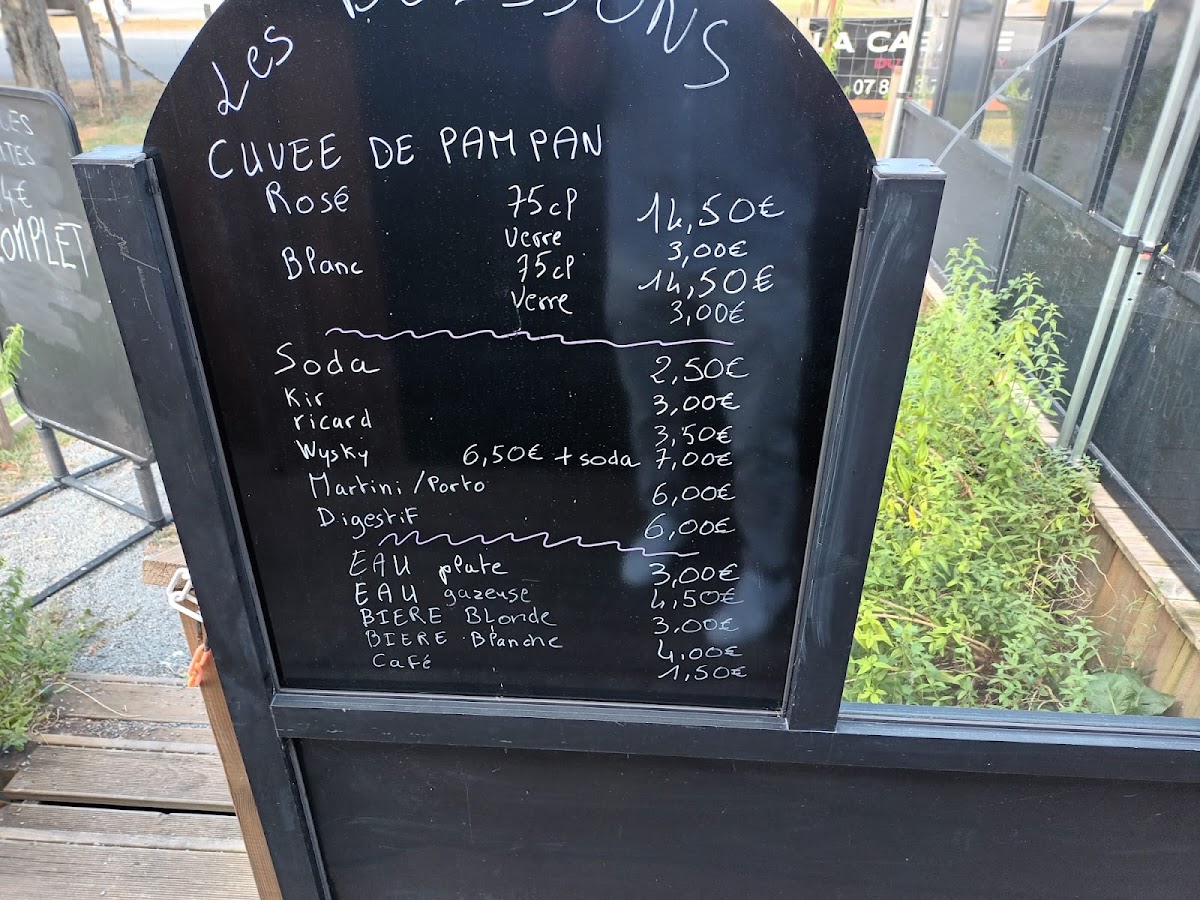 Les BOISSONS
CUVEE DE PAMPAN
Rosé 75cl 14,50€
Verre 3,00€
Blanc 75cl 14,50€
Verre 3,00€
Soda 2,50€
Kir 3,00€
ricard 3,50€
Wysky 6,50€ + soda 7,00€
Martini /Porto 6,00€
Digestif 6,00€
EAU plate 3,00€
EAU gazeuse 4,50€
BIERE Blonde 3,00€
BIERE Blanche 4,00€
Café 1,50€
4€
COMPLET
LA
DU
07 8